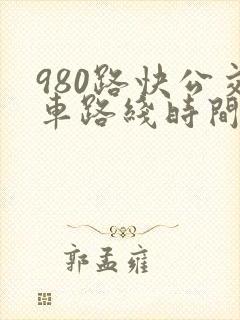 980路快公交
車路綫時間
郭孟雍